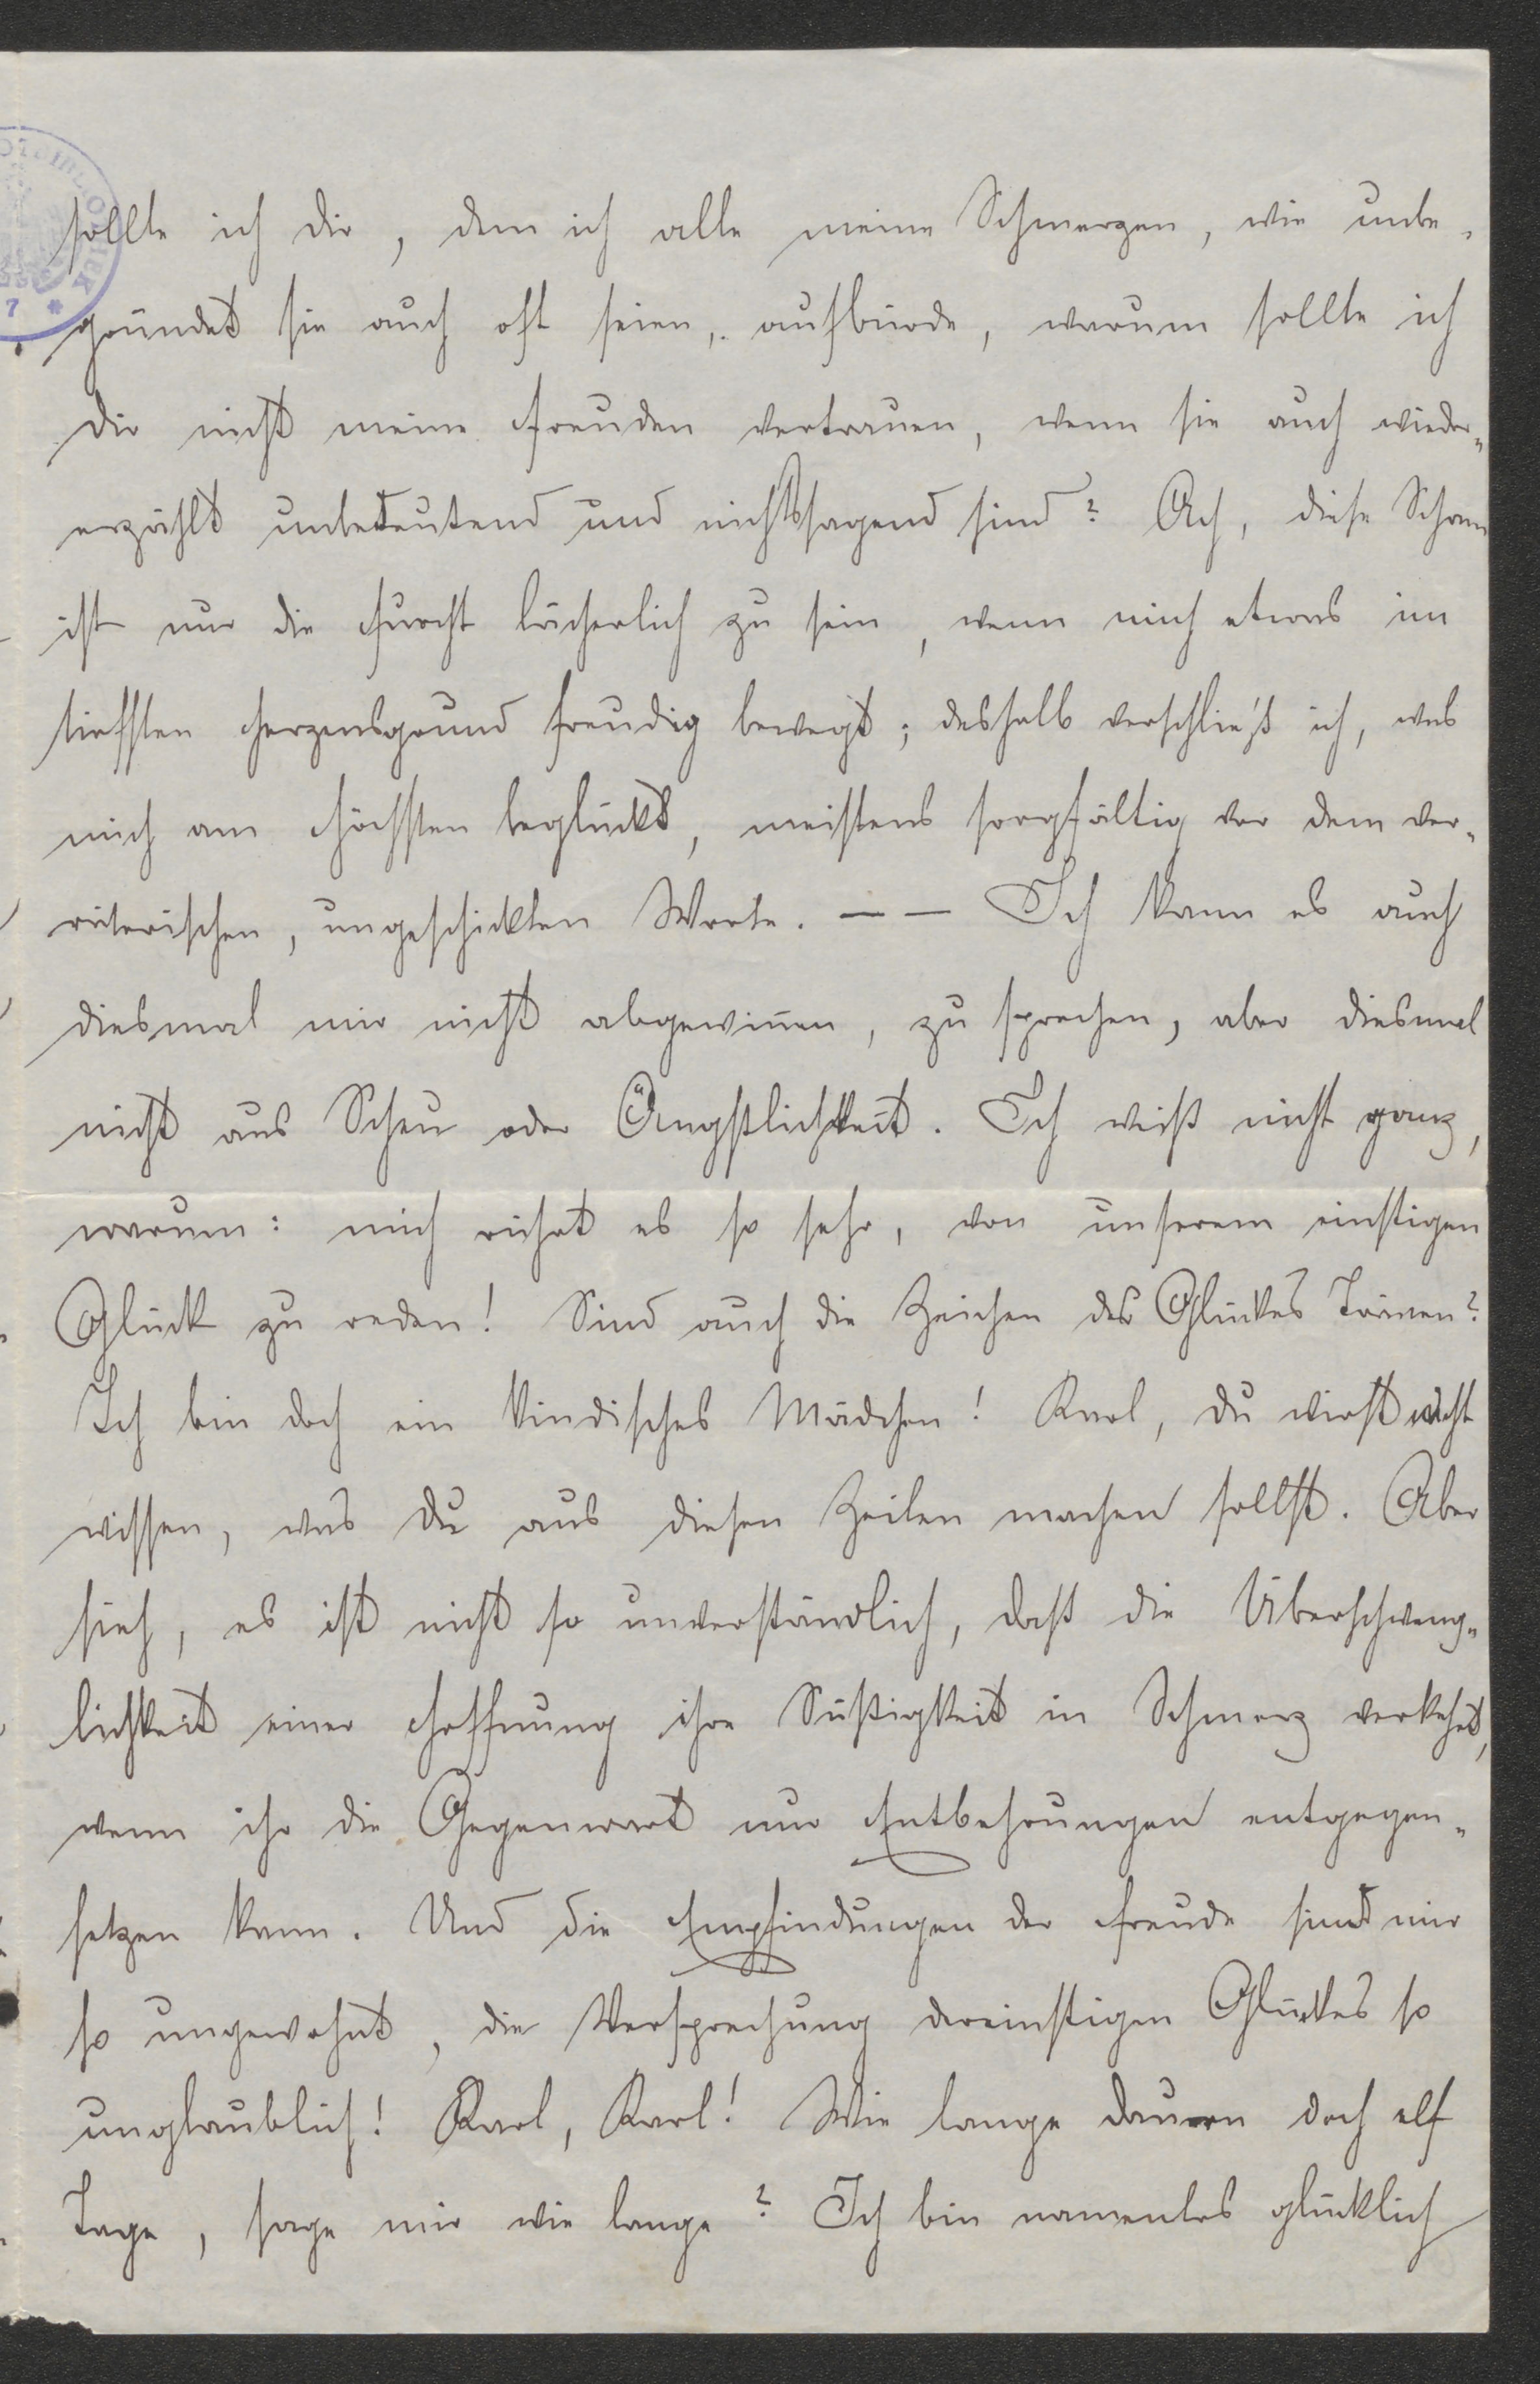 sollte ich dir, dem ich alle meine Schmerzen, wie unbe-
gründet sie auch oft seien, aufbürde, warum sollte ich
dir nicht meine Freuden vertrauen, wenn sie auch wieder-
erzählt unbedeutend und nichtssagend sind? Ach, diese Scham
ist nur die Furcht lächerlich zu sein, wenn mich etwas im
tiefsten Herzensgrund freudig bewegt; deshalb verschließ ich, was
mich am Höchsten beglückt, meistens sorgfältig vor dem ver-
räterischen, ungeschickten Worte. — — Ich kann es auch
diesmal mir nicht abgewinnen, zu sprechen, aber diesmal
nicht aus Scheu oder Ängstlichkeit. Ich weiß nicht ganz,
warum: mich rührt es so sehr, von unserem einstigen
Glück zu reden! Sind auch die Zeichen des Glückes Tränen?
Ich bin doch ein kindisches Mädchen! Karl, du wirst nicht
wissen, was du aus diesen Zeilen machen sollst. Aber
sieh, es ist nicht so unverständlich, daß die Überschweng-
lichkeit einer Hoffnung ihre Süßigkeit in Schmerz verkehrt,
wenn ihr die Gegenwart nur Entbehrungen entgegen-
setzen kann. Und die Empfindungen der Freude sind mir
so ungewohnt, die Versprechung dereinstigen Glückes so
unglaublich! Karl, Karl! Wie lange dauern doch elf
Tage, sage mir wie lange? Ich bin namenlos glücklich